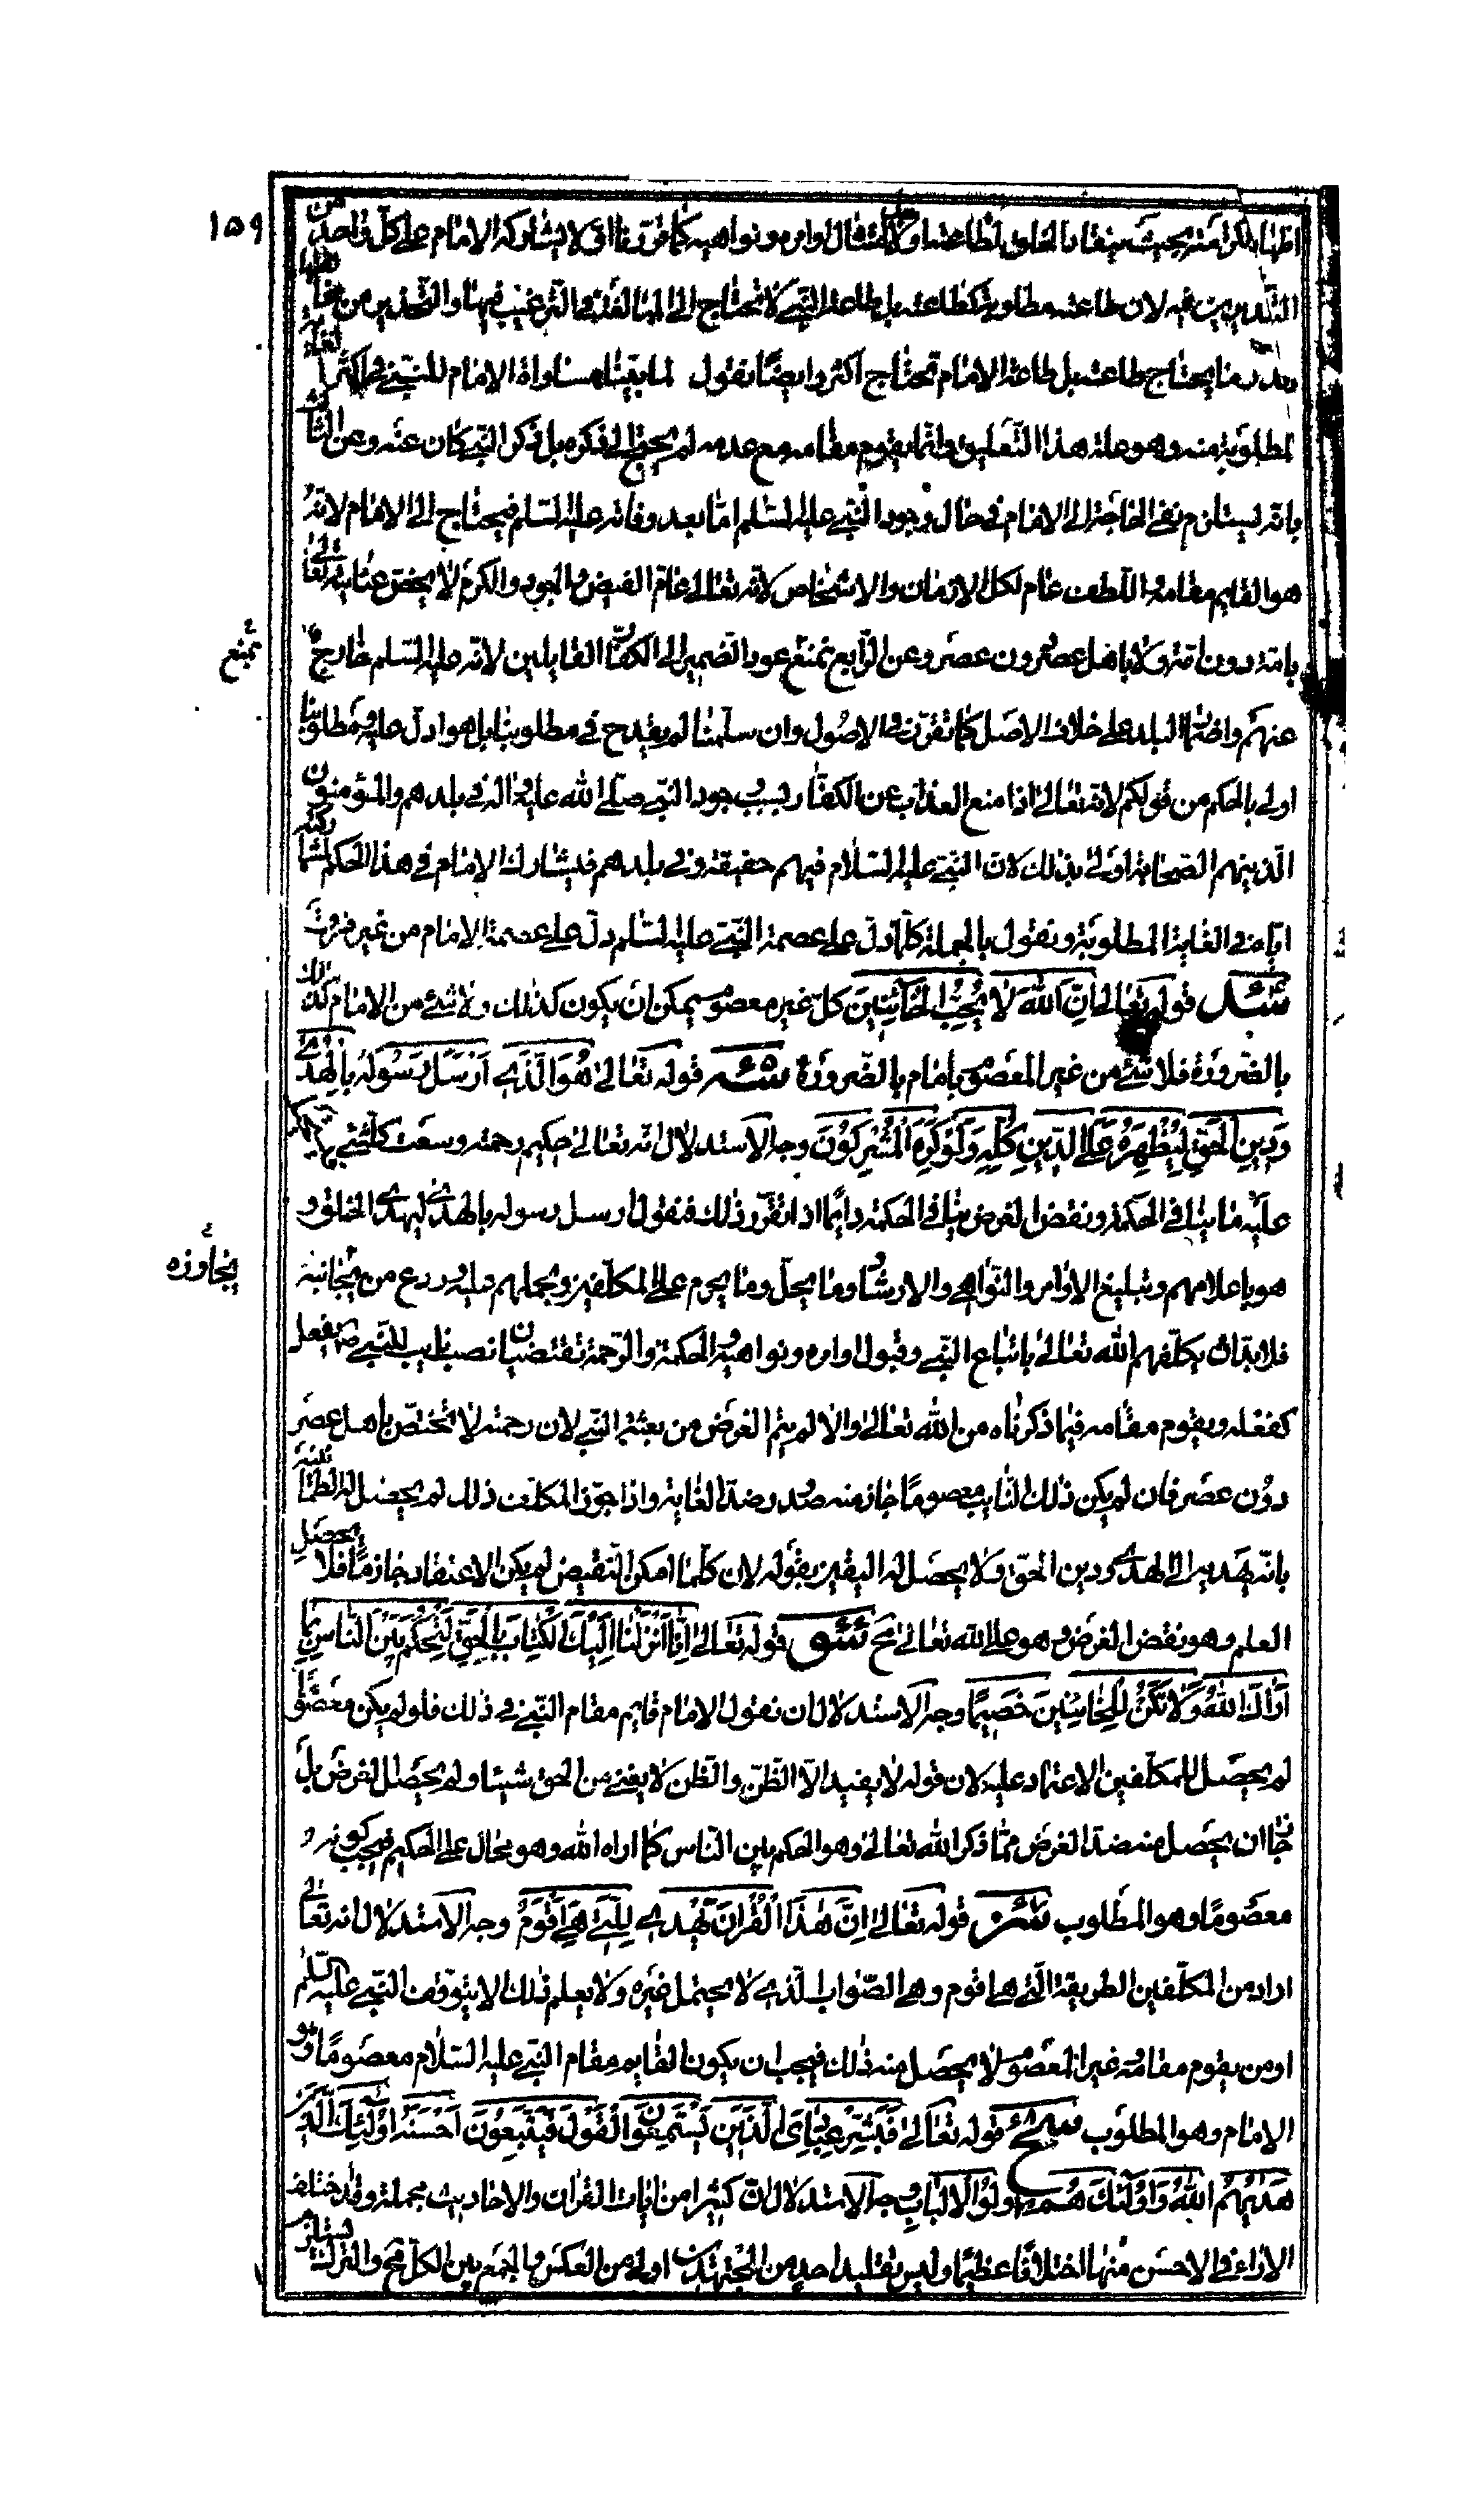 ١٥٩
بالخلق لطاعته و لامتثال اوامره ونواهيه كما لا يشاركه الامام على كل واحد من
لان طاعته مطلوبة كطاعته بل طاعة النبي لا تحتاج الى المبالغة والترغيب فيها والتحذير من
ما يحتاج طاعته بل طاعة الامام تحتاج اكثر وايضا نقول لما بيّنا مساواة الامام للنبي في
المطلوبة منه وهو علة هذا التعليق وانما يقوم مقامه مع عدمه لم يحتج الى ذكره بل ذكر النبي كان عنه وعن الثالث
بانه يستلزم نفى الحاجة الى الامام في حال وجود النبي عليه السّلم امّا بعد وفاته عليه السّلم فيحتاج الى الامام لانّه
هو القايم مقامه و اللّطف عام لكل الازمان والاشخاص لانّه تعالى عام الفيض و الجود والكرم لا يختص عنايته تعالى
بامة دون امة ولا باهل عصر دون عصر وعن الرّابع نمنع عود الضمير الى الكفّار القايلين لانّه عليه السّلم خارج
نمنع
عنهم واضمار البلد على خلاف الاصل كما تقرر في الاصول وان سلّمنا لم يقدح في مطلوبنا بل هو ادلّ عليه و مطلوبنا
اولى بالحكم من قولكم لانه تعالى اذا منع العذاب عن الكفّار بسبب وجود النبي صلى الله عليه و اله في بلدهم والمؤمنون
الّذين هم الصحابة اولى بذلك لان النبي عليه السّلام فيهم حقيقة وفى بلدهم فيشارك الامام في هذا الحكم لمشاركته
اياه في الغاية المطلوبة ونقول بالجملة كلّما دلّ على عصمة النبي عليه السّلم دلّ على عصمة الامام من غير فرق
قوله تعالى انّ الله لا يحبّ الخائنين كلّ غير معصوم يمكن ان يكون كذلك ولا شئ من الامام كذلك
بالضرورة فلا شئ من غير المعصوم بامام بالضّرورة قوله تعالى هو الّذى ارسل رسوله بالهدى
ودين الحقّ ليظهره على الدّين كلّه ولو كره المشركون وجه الاستدلال انّه تعالى حكيم رحمته وسعت كلّ شئ
عليه ما ينافى الحكمة ونقض الغرض ينافى الحكمة دايما اذا تقرّر ذلك فنقول ارسل رسوله بالهدى ليهدى الخلق و
هو باعلامهم وتبليغ الاوامر والنّواهى والارشاد وما يحلّ وما يحرم على المكلّفين ويحملهم عليه و ردع من يجانبه
يجاوزه
فلابدّ ان يكلّفهم الله تعالى باتباع النّبي وقبول اوامره ونواهيه و الحكمة والرّحمة تقتضيان نصب نايب للنبي يفعل
كفعله ويقوم مقامه فيما ذكرناه من الله تعالى والا لم يتم الغرض من بعثة النبي لان رحمته لا تختصّ باهل عصر
دون عصر فان لم يكن ذلك النّايب معصومًا جاز منه صدور ضدّ الغاية واذا جوّز المكلّف ذلك لم يحصل له الطمانينة
بانّه يهديه الى الهدى ودين الحقّ ولا يحصل له اليقين بقوله لان كلّما امكن النّقيض لم يكن الاعتقاد جازمًا فلا يحصل
العلم وهو نقض الغرض و هو على الله تعالى مح قوله تعالى انّا انزلنا اليك الكتاب بالحقّ لتحكم بين النّاس بما
اراك الله ولا تكن للخائنين خصيمًا وجه الاستدلال ان نقول الامام قايم مقام النّبي في ذلك فلو لم يكن معصومًا
لم يحصل للمكلّفين الاعتماد عليه لان قوله لا يفيد الّا الظّن والظّن لا يغنى من الحق شيئا ولم يحصل الغرض بل
جاز ان يحصل منه ضدّ الغرض ممّا ذكر الله تعالى وهو الحكم بين النّاس كما اراه الله وهو محال على الحكيم فيجب كونه
معصومًا وهو المطلوب قوله تعالى انّ هذا القران يهدى للّتى هى اقوم وجه الاستدلال انه تعالى
اراد من المكلّفين الطريقة الّتى هى اقوم وهى الصّواب الّذى لا يحتمل غيره ولا يعلم ذلك الا بتوقيف النّبي عليه السّلم
او من يقوم مقامه و غير المعصوم لا يحصل منه ذلك فيجب ان يكون القايم مقام النّبي عليه السّلام معصومًا وهو
الامام وهو المطلوب قوله تعالى فبشّر عبادى الّذين يستمعون القول فيتّبعون احسنه اولئك الّذين
هديهم الله واولئك هم اولو الالباب وجه الاستدلال انّ كثيرا من ايات القران والاحاديث مجملة وقد اختلف
الاراء في الاحسن منها اختلافًا عظيمًا وليس تقليد احد من المجتهدين اولى من العكس والجمع بين الكلّ مح والترك